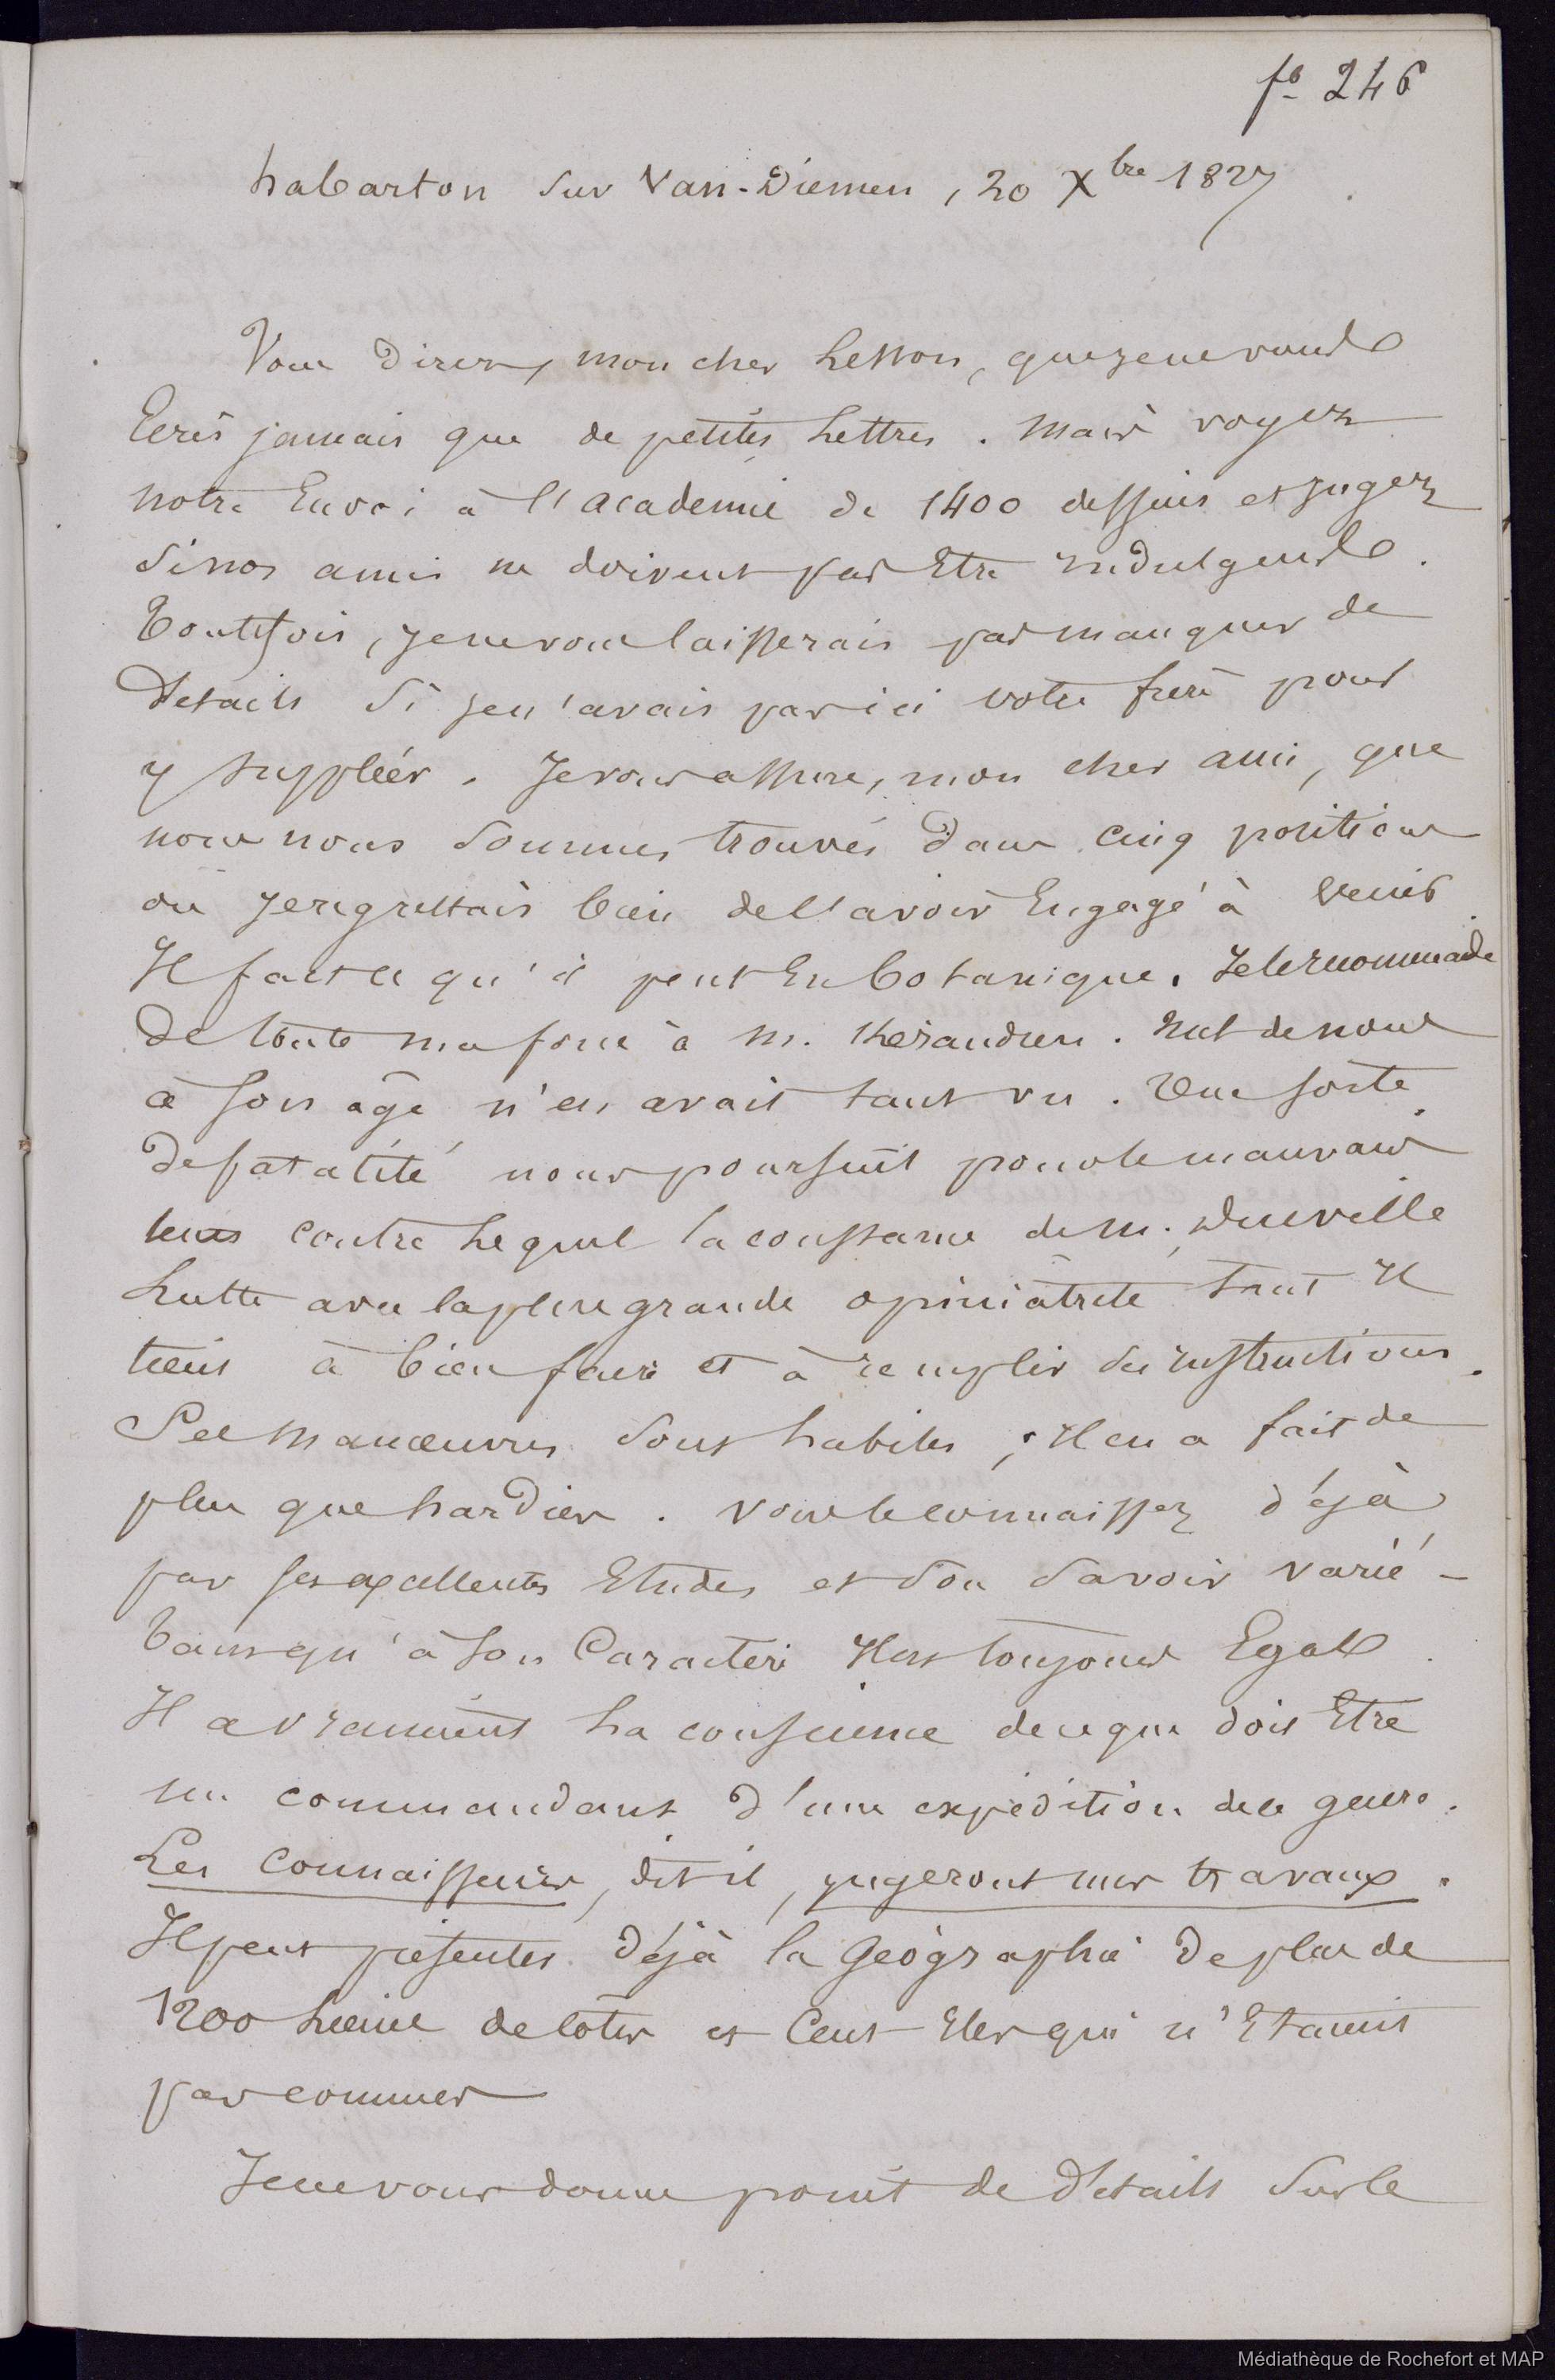 fo 246
habarton sur Van-Diemen, 20 Xbre 1827
Vous direz, mon cher Lesson, que je ne vous
Ecris jamais que de petites Lettres. Mais voyez
notre Envoi à l'académie de 1400 dessins et jugez
si nos amis ne doivent pas Etre indulgens.
Toutefois, je ne vous laisserais pas manquer de
Details si je n'avais pas ici votre frere pour
y suppléer. Je vous assure, mon cher ami, que
nous nous sommes trouvés dans cinq positions
où je regrettais bien de l'avoir Engagé à venir.
Il fait ce qu'il peut En botanique. Je le recommande
de toute ma force à M. Keraudren. Nul de nous
à son âge n'en avait tant vu. Une sorte
de fatalité nous poursuit pour le mauvais
tems contre Lequel la constance de M. Durville
Lutte avec la plus grande opiniâtreté tant Il
tient à bien faire et à remplir ses instructions.
Ses manœuvres sont habiles ; Il en a fait de
plus que hardies. Vous le connaissez déjà
par ses excellentes Etudes et son savoir varié -
Tant qu'à son Caractère Il est toujours Egal.
Il a vraiment La conscience de ce que doit Etre
un commandant d'une expédition de ce genre.
Les connaisseurs, dit il, jugeront mes travaux.
Il peut présenter déjà la Géographie de plus de
1200 Lieues de côtes et Cent Iles qui n'Etaient
pas connues
Je ne vous donne point de Details sur le
Médiathèque de Rochefort et MAP